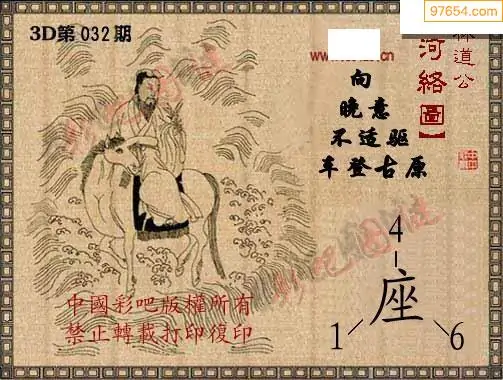 97654.com
3D第032期
林道公
河絡【圖】
向
晚意
不适驱
车登古原
彩吧圖迷
彩吧圖迷
4
座
1 6
中國彩吧版權所有
禁止轉載打印復印